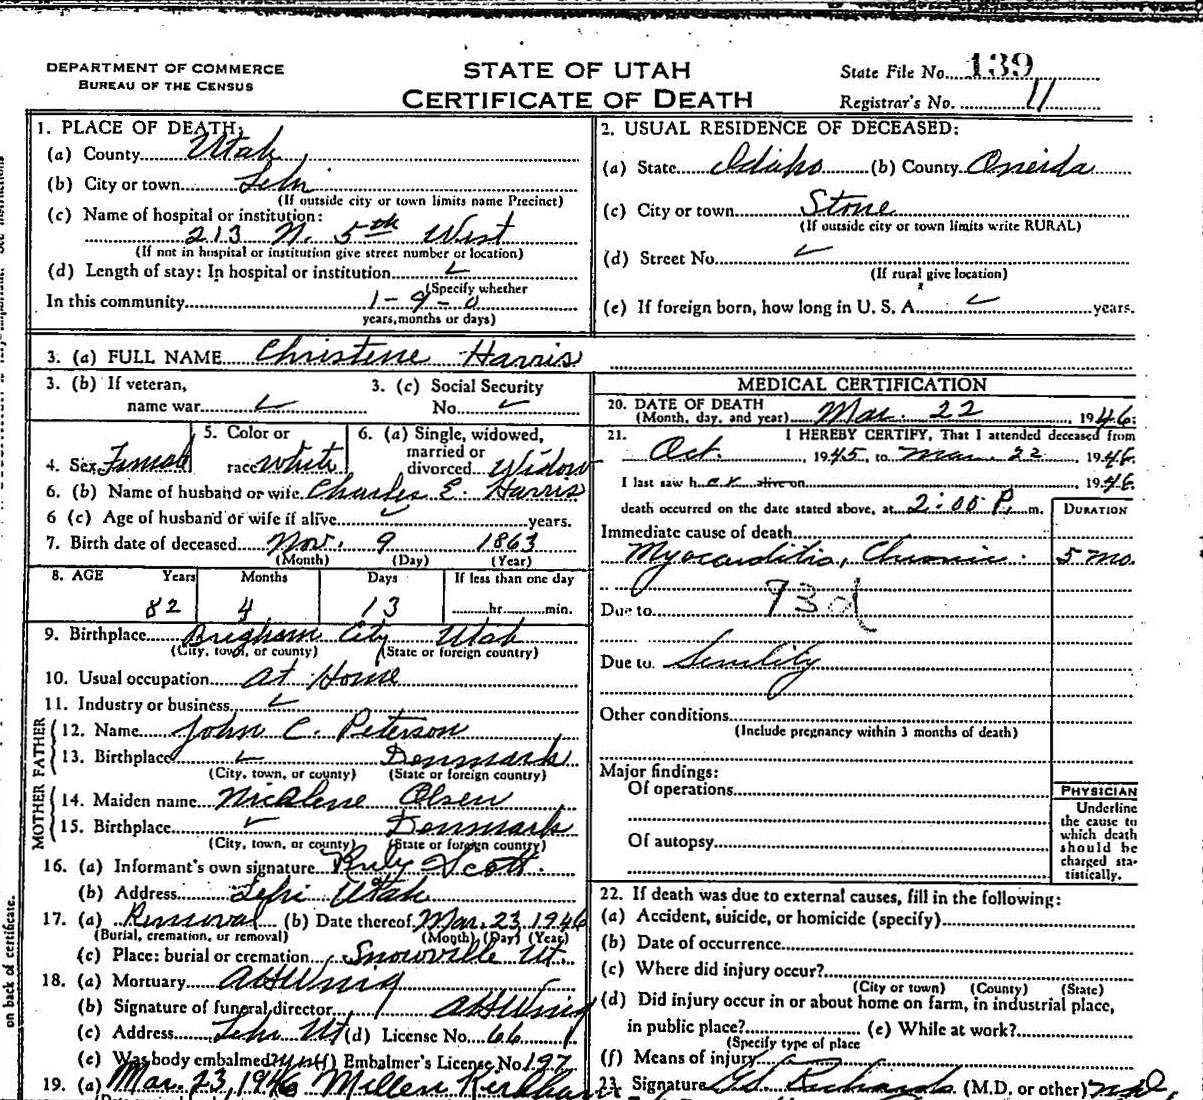 DEPARTMENT OF COMMERCE
BUREAU OF THE CENSUS
STATE OF UTAH
CERTIFICATE OF DEATH
State File No. 139
Registrar's No. 11
1. PLACE OF DEATH:
(a) County Utah
(b) City or town Lehi
(If outside city or town limits name Precinct)
(c) Name of hospital or institution:
213 N. 5th West
(If not in hospital or institution give street number or location)
(d) Length of stay: In hospital or institution
(Specify whether
In this community 1-9-0
years, months or days)
2. USUAL RESIDENCE OF DECEASED:
(a) State Idaho (b) County Oneida
(c) City or town Stone
(If outside city or town limits write RURAL)
(d) Street No. ✓
(If rural give location)
(e) If foreign born, how long in U. S. A. ✓ years.
3. (a) FULL NAME Christene Harris
3. (b) If veteran,
name war ✓
3. (c) Social Security
No. ✓
4. Sex Female
5. Color or
race White
6. (a) Single, widowed,
married or
divorced Widow
6. (b) Name of husband or wife Charles E. Harris
6 (c) Age of husband or wife if alive ✓ years.
7. Birth date of deceased Nov. 9 1863
(Month) (Day) (Year)
8. AGE Years Months Days If less than one day
82 4 13 hr. min.
9. Birthplace Brigham City Utah
(City, town, or county) (State or foreign country)
10. Usual occupation at Home
11. Industry or business ✓
FATHER
12. Name John C. Peterson
13. Birthplace ✓ Denmark
(City, town, or county) (State or foreign country)
MOTHER
14. Maiden name Nicolene Olsen
15. Birthplace ✓ Denmark
(City, town, or county) (State or foreign country)
16. (a) Informant's own signature Ruby Scott.
(b) Address Lehi Utah
17. (a) Removal (b) Date thereof Mar. 23, 1946
(Burial, cremation, or removal) (Month) (Day) (Year)
(c) Place: burial or cremation Snowville Ut.
18. (a) Mortuary
(b) Signature of funeral director
(c) Address Lehi Ut (d) License No. 66
(e) Was body embalmed (f) Embalmer's License No. 197
19. (a) Mar. 23, 1946 Millen Kirkham
MEDICAL CERTIFICATION
20. DATE OF DEATH
(Month, day, and year) Mar. 22 1946.
21. I HEREBY CERTIFY, That I attended deceased from
Oct. , 1945, to Mar. 22 , 1946
I last saw her alive on , 1946
death occurred on the date stated above, at 2:00 P. m.
DURATION
Immediate cause of death
Myocarditis, Chronic. 5 mo.
93d
Due to
Due to Senility
Other conditions
(Include pregnancy within 3 months of death)
Major findings:
Of operations
Of autopsy
PHYSICIAN
Underline
the cause to
which death
should be
charged sta-
tistically.
22. If death was due to external causes, fill in the following:
(a) Accident, suicide, or homicide (specify)
(b) Date of occurrence
(c) Where did injury occur?
(City or town) (County) (State)
(d) Did injury occur in or about home on farm, in industrial place,
in public place? (e) While at work?
(Specify type of place
(f) Means of injury
23. Signature Richards (M.D. or other) M.D.
on back of certificate.